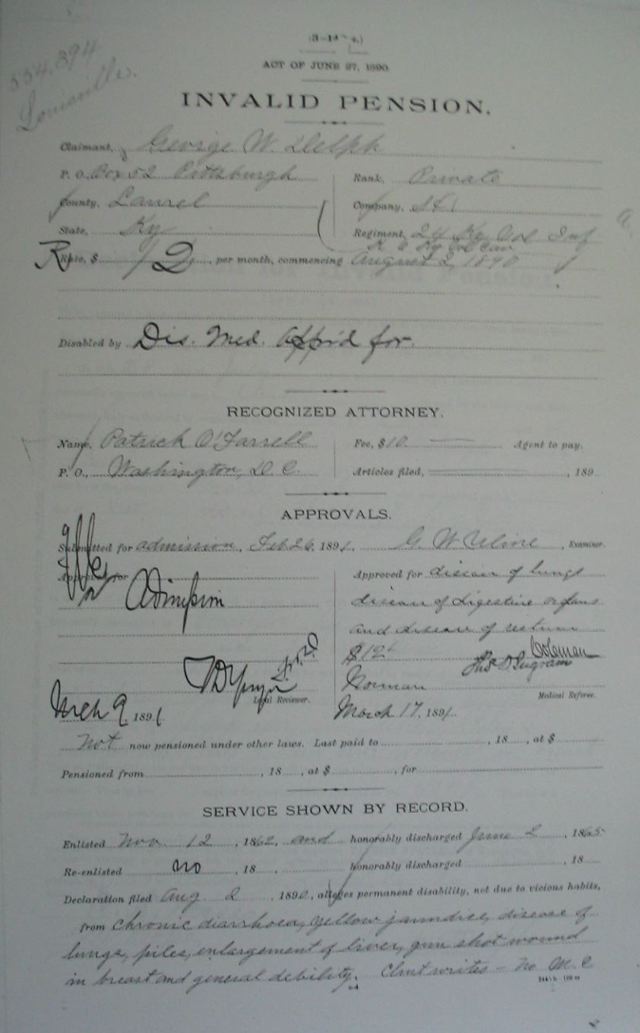 (3-14
534,394
Louisville.
ACT OF JUNE 27, 1890.
INVALID PENSION.
Claimant, George W. Delph
P. O., Box 52 Pittsburgh
County, Laurel
State, Ky
Rank, Private
Company,
Regiment, 24 Ky Vol Inf
Rate, $ 12, per month, commencing August 2, 1890
Disabled by Dis. Med. App'd for.
RECOGNIZED ATTORNEY.
Name, Patrick O'Farrell
P. O., Washington, D. C.
Fee, $10. Agent to pay.
Articles filed, , 189
APPROVALS.
Submitted for admission, Feb 26, 1891. G. W. Cline, Examiner.
Approved for
Legal Reviewer.
Mch 9, 1891
Approved for disease of lungs
disease of digestive organs
and disease of rectum
$12
Medical Referee.
March 17, 1891.
Not now pensioned under other laws. Last paid to , 18 , at $
Pensioned from , 18 , at $ , for
SERVICE SHOWN BY RECORD.
Enlisted Nov. 12, 1862, and honorably discharged June 2, 1865
Re-enlisted no , 18 honorably discharged , 18
Declaration filed Aug 2 1890, alleges permanent disability, not due to vicious habits,
from Chronic diarrhoea, yellow jaundice, disease of
lungs, piles, enlargement of liver, gun shot wound
in breast and general debility. Clmt writes - no M. C